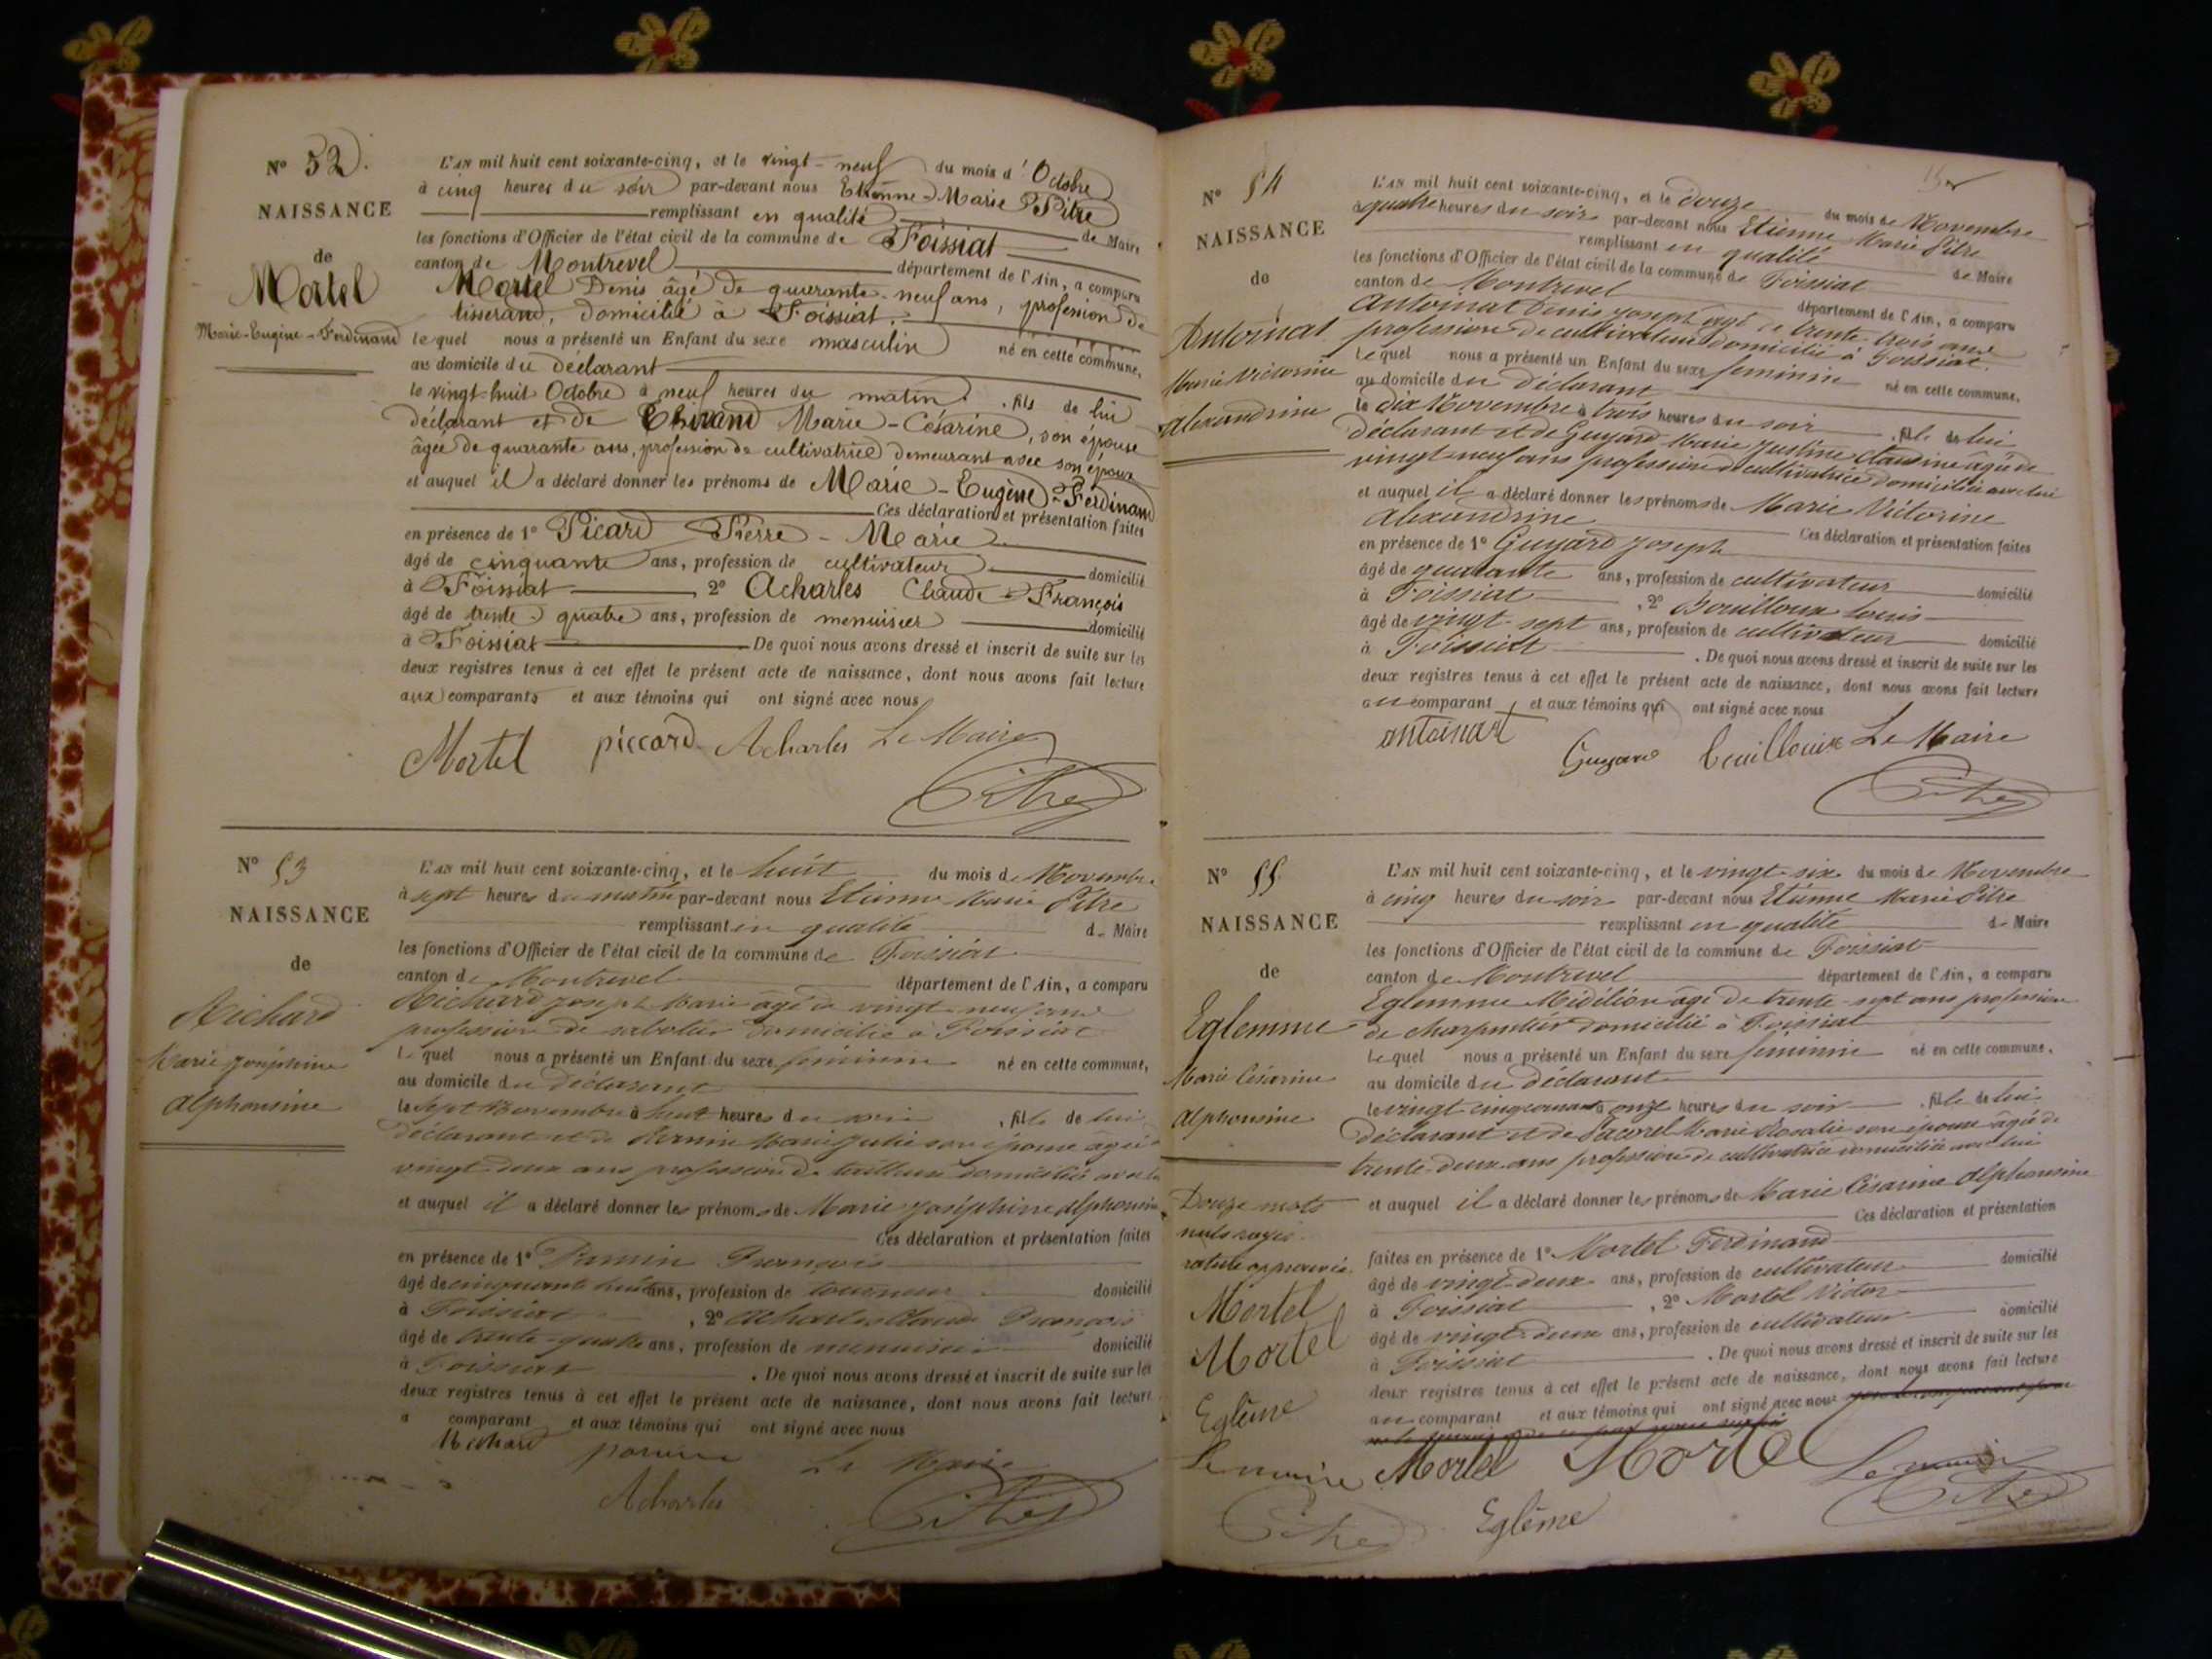 N° 52.
NAISSANCE
de
Mortel
Marie-Eugène-Ferdinand
L'AN mil huit cent soixante-cinq, et le vingt-neuf du mois d'Octobre
à cinq heures du soir par-devant nous Etienne-Marie Pitre
remplissant en qualité de Maire
les fonctions d'Officier de l'état civil de la commune de Foissiat
canton de Montrevel département de l'Ain, a comparu
Mortel Denis âgé de quarante-neuf ans, profession de
tisserand, domicilié à Foissiat,
lequel nous a présenté un Enfant du sexe masculin né en cette commune,
au domicile du déclarant
le vingt-huit Octobre à neuf heures du matin, fils de lui
déclarant et de Marie-Césarine, son épouse
âgée de quarante ans, profession de cultivatrice demeurant avec son époux
et auquel il a déclaré donner les prénoms de Marie-Eugène-Ferdinand
Ces déclaration et présentation faites
en présence de 1° Picard Pierre-Marie
âgé de cinquante ans, profession de cultivateur domicilié
à Foissiat 2° Acharles Claude-François
âgé de trente-quatre ans, profession de menuisier domicilié
à Foissiat De quoi nous avons dressé et inscrit de suite sur les
deux registres tenus à cet effet le présent acte de naissance, dont nous avons fait lecture
aux comparants et aux témoins qui ont signé avec nous
Mortel piccard Acharles Le Maire
Pitre
N° 53
NAISSANCE
de
Richard
Marie Joséphine
Alphonsine
L'AN mil huit cent soixante-cinq, et le huit du mois de Novembre
à sept heures du matin par-devant nous Etienne Marie Pitre
remplissant en qualité de Maire
les fonctions d'Officier de l'état civil de la commune de Foissiat
canton de Montrevel département de l'Ain, a comparu
Richard Joseph Marie âgé de vingt-neuf ans
profession de sabotier domicilié à Foissiat
lequel nous a présenté un Enfant du sexe feminin né en cette commune,
au domicile du déclarant
le sept Novembre à huit heures du soir, fille de lui
déclarant et de Marie Julie son épouse agée de
vingt-deux ans profession de tailleuse domiciliée avec lui
et auquel il a déclaré donner les prénoms de Marie Joséphine Alphonsine
Ces déclaration et présentation faites
en présence de 1° François
âgé de cinquante huit ans, profession de tourneur domicilié
à Foissiat, 2° Acharles Claude François
âgé de trente-quatre ans, profession de menuisier domicilié
à Foissiat. De quoi nous avons dressé et inscrit de suite sur les
deux registres tenus à cet effet le présent acte de naissance, dont nous avons fait lecture
a comparant et aux témoins qui ont signé avec nous
Richard Le Maire
Acharles Pitre
N° 54
NAISSANCE
de
Antoinat
Marie Victorine
Alexandrine
L'AN mil huit cent soixante-cinq, et le douze du mois de Novembre
à quatre heures du soir par-devant nous Etienne Marie Pitre
remplissant en qualité de Maire
les fonctions d'Officier de l'état civil de la commune de Foissiat
canton de Montrevel département de l'Ain, a comparu
Antoinat Denis Joseph agé de trente-trois ans
profession de cultivateur domicilié à Foissiat.
lequel nous a présenté un Enfant du sexe feminin né en cette commune,
au domicile du déclarant
le dix Novembre à trois heures du soir, fille de lui
déclarant et de Guyard Marie Justine Claudine âgée de
vingt-neuf ans profession de cultivatrice domiciliée avec lui
et auquel il a déclaré donner les prénoms de Marie Victorine
Alexandrine Ces déclaration et présentation faites
en présence de 1° Guyard Joseph
âgé de quarante ans, profession de cultivateur domicilié
à Foissiat, 2° Bouilloux Louis
âgé de vingt-sept ans, profession de cultivateur domicilié
à Foissiat. De quoi nous avons dressé et inscrit de suite sur les
deux registres tenus à cet effet le présent acte de naissance, dont nous avons fait lecture
au comparant et aux témoins qui ont signé avec nous
antoinat Guyard bouilloux Le Maire
Pitre
N° 55
NAISSANCE
de
Eglemme
Marie Césarine
Alphonsine
Douze mots
nuls rayés
rature approuvée.
Mortel
Mortel
Eglême
Le maire
Pitre
L'AN mil huit cent soixante-cinq, et le vingt-six du mois de Novembre
à cinq heures du soir par-devant nous Etienne Marie Pitre
remplissant en qualité de Maire
les fonctions d'Officier de l'état civil de la commune de Foissiat
canton de Montrevel département de l'Ain, a comparu
Eglemme âgé de trente-sept ans profession
de charpentier domicilié à Foissiat
lequel nous a présenté un Enfant du sexe feminin né en cette commune,
au domicile du déclarant
le vingt cinq courant à onze heures du soir, fille de lui
déclarant et de Marie Rosalie son épouse âgée de
trente-deux ans profession de cultivatrice domiciliée avec lui
et auquel il a déclaré donner les prénoms de Marie Césarine Alphonsine
Ces déclaration et présentation
faites en présence de 1° Mortel Ferdinand
âgé de vingt-deux ans, profession de cultivateur domicilié
à Foissiat, 2° Mortel Victor
âgé de vingt-deux ans, profession de cultivateur domicilié
à Foissiat. De quoi nous avons dressé et inscrit de suite sur les
deux registres tenus à cet effet le présent acte de naissance, dont nous avons fait lecture
au comparant et aux témoins qui ont signé avec nous
Mortel Mortel Le maire
Eglême Pitre